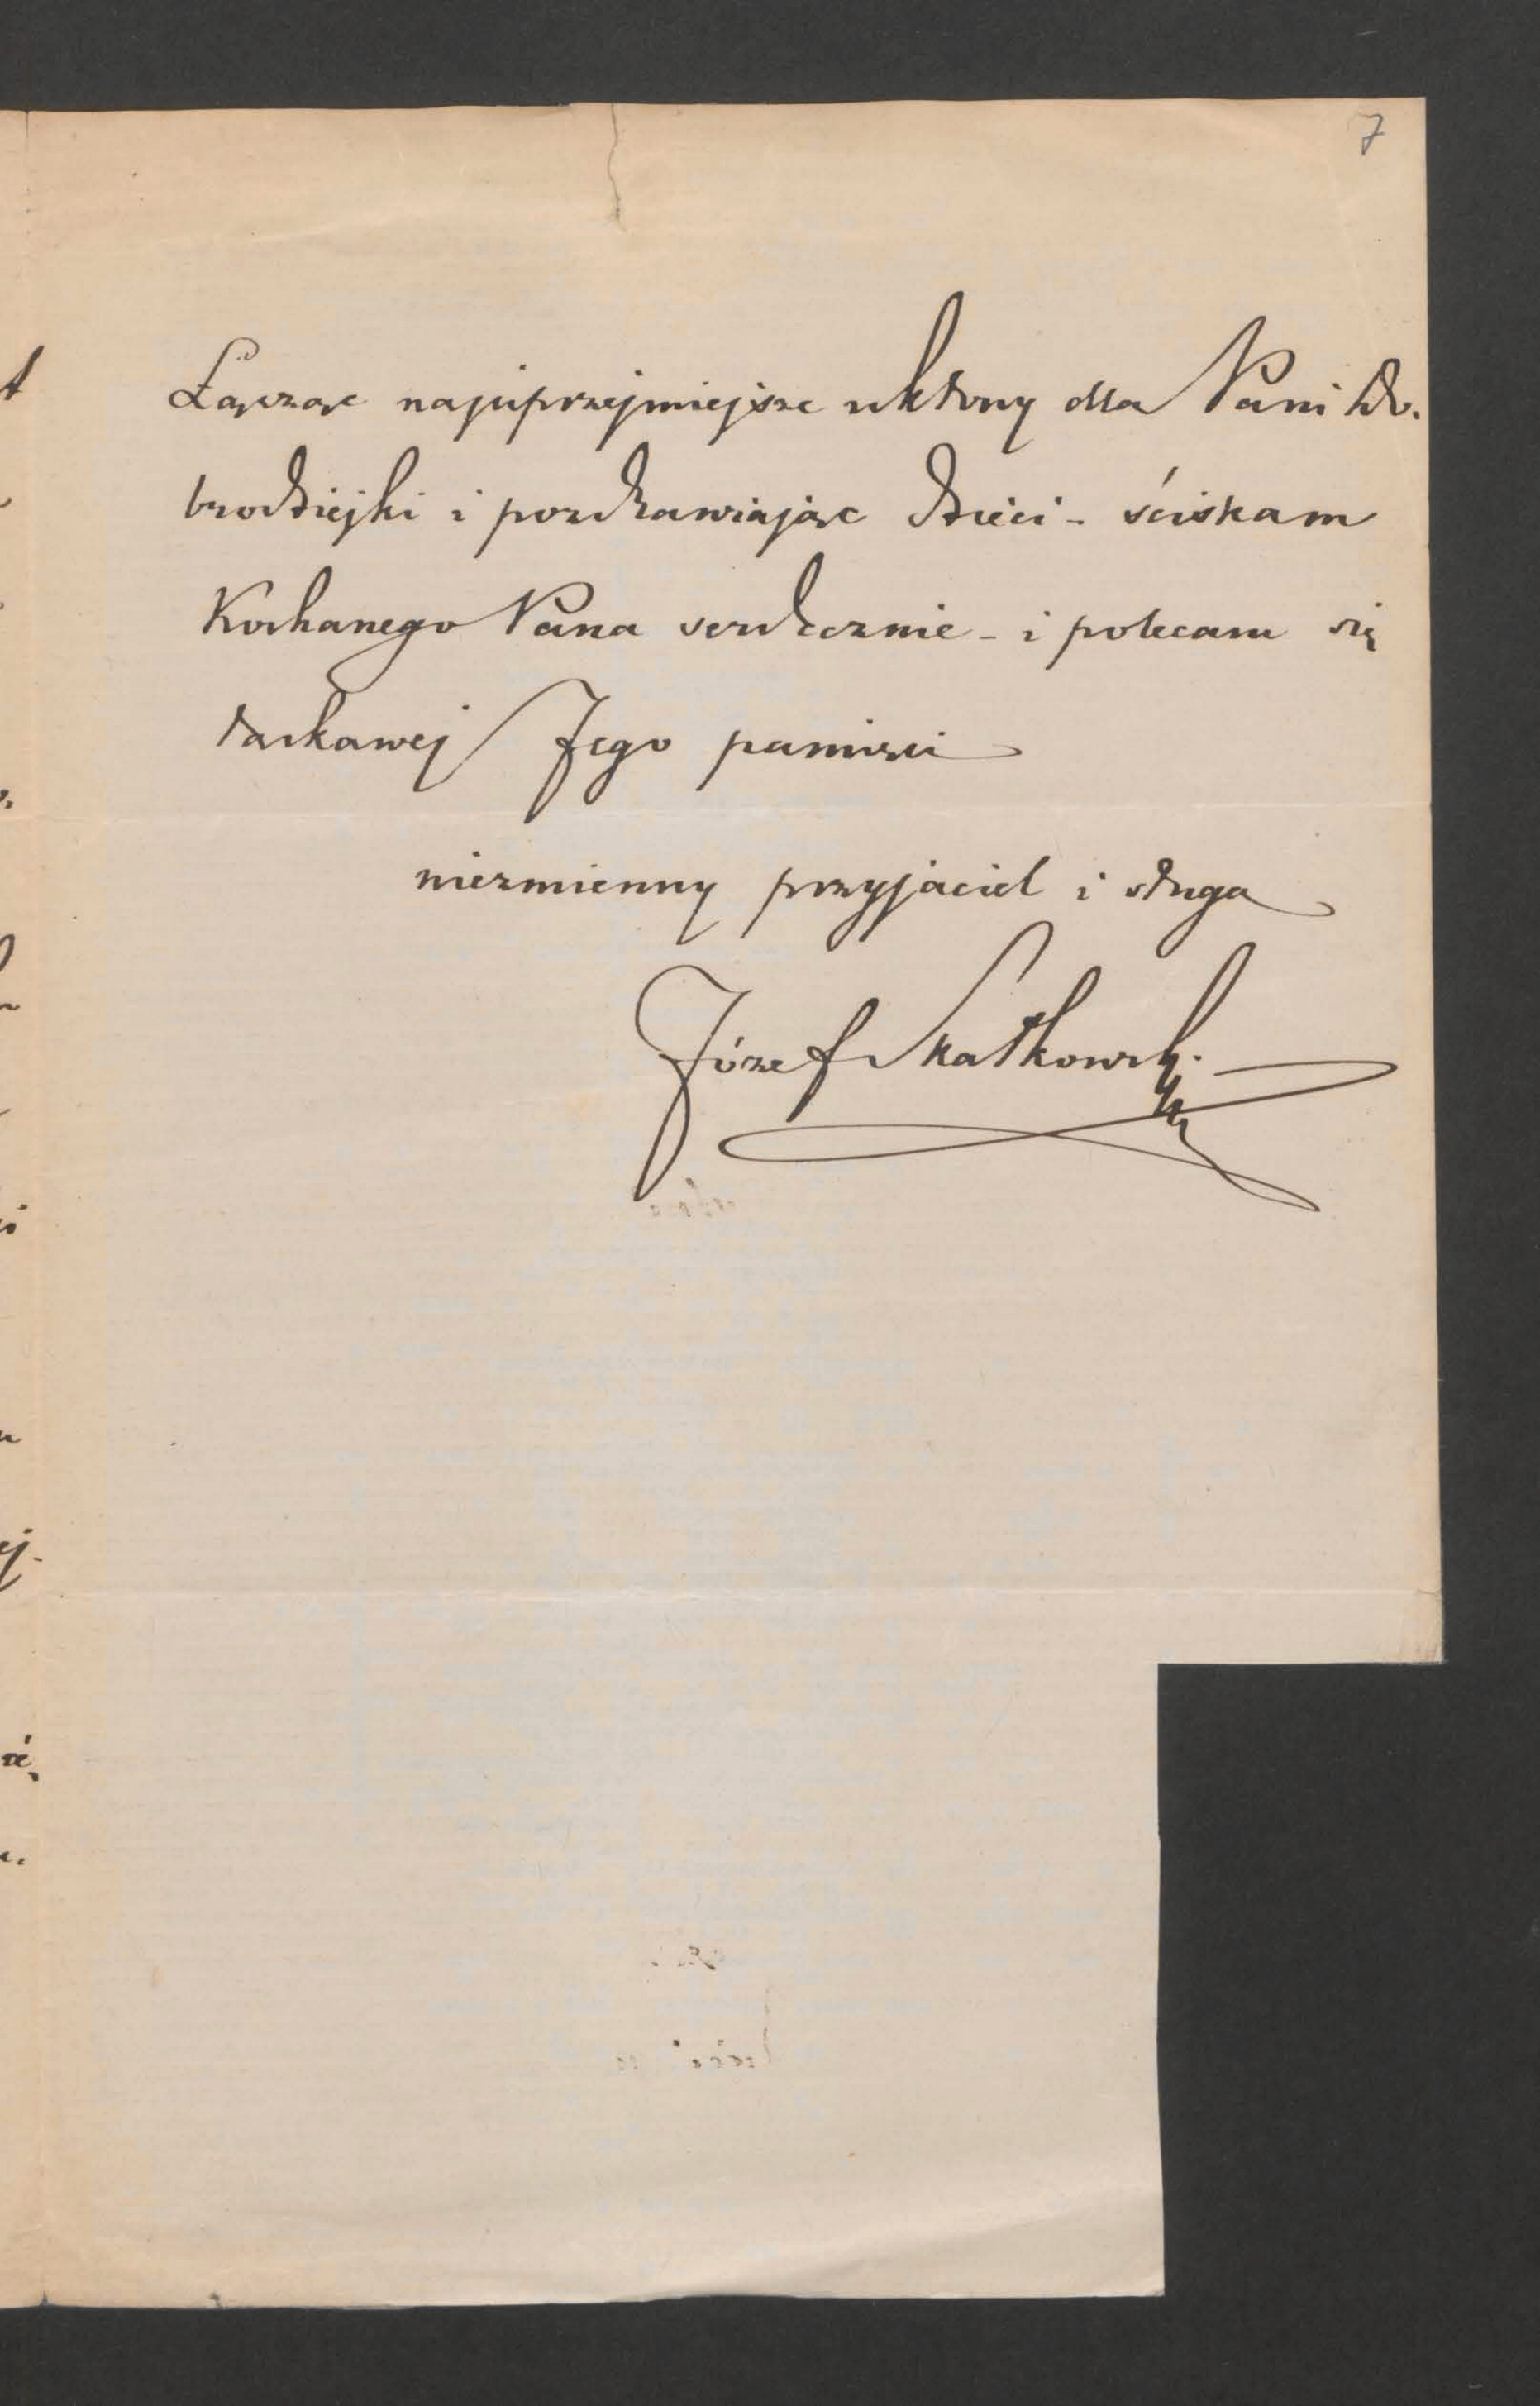 7
Łącząc najuprzejmiejsze ukłony dla Pani Do-
brodziejki i pozdrawiając dzieci - ściskam
Kochanego Pana serdecznie - i polecam się
łaskawej Jego pamięci
niezmienny przyjaciel i sługa
Józef Skałkowski